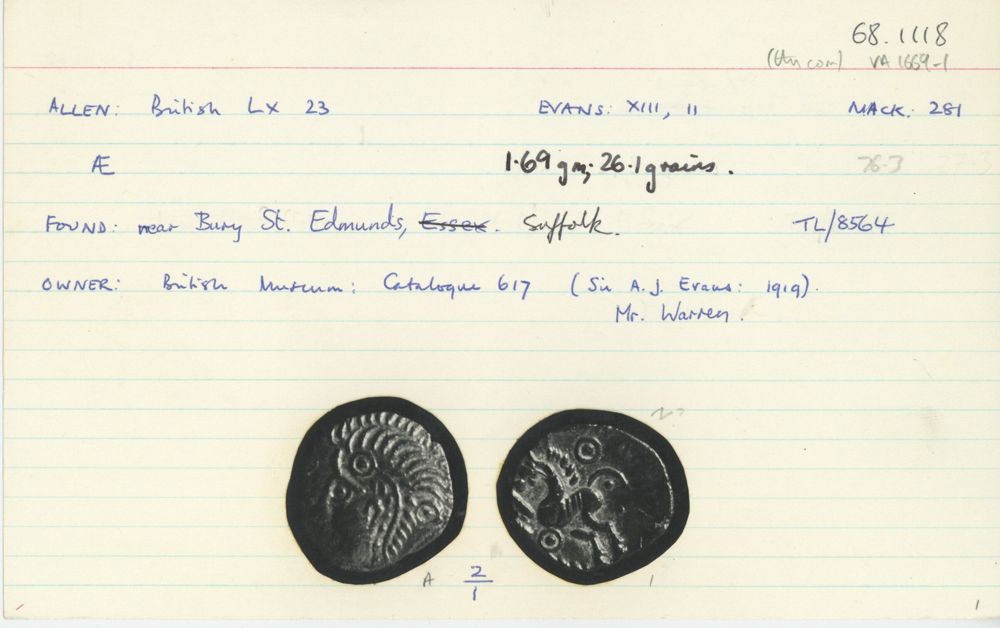 68.1118
(Uncom) VA 1669-1
ALLEN: British LX 23 EVANS: XIII, 11 MACK: 281
Æ 1.69 gm; 26.1 grains. 76-3
FOUND: near Bury St. Edmunds, Essex. Suffolk. TL/8564
OWNER: British Museum: Catalogue 617 (Sir A.J. Evans: 1919).
Mr. Warren.
A 2/1 1
1